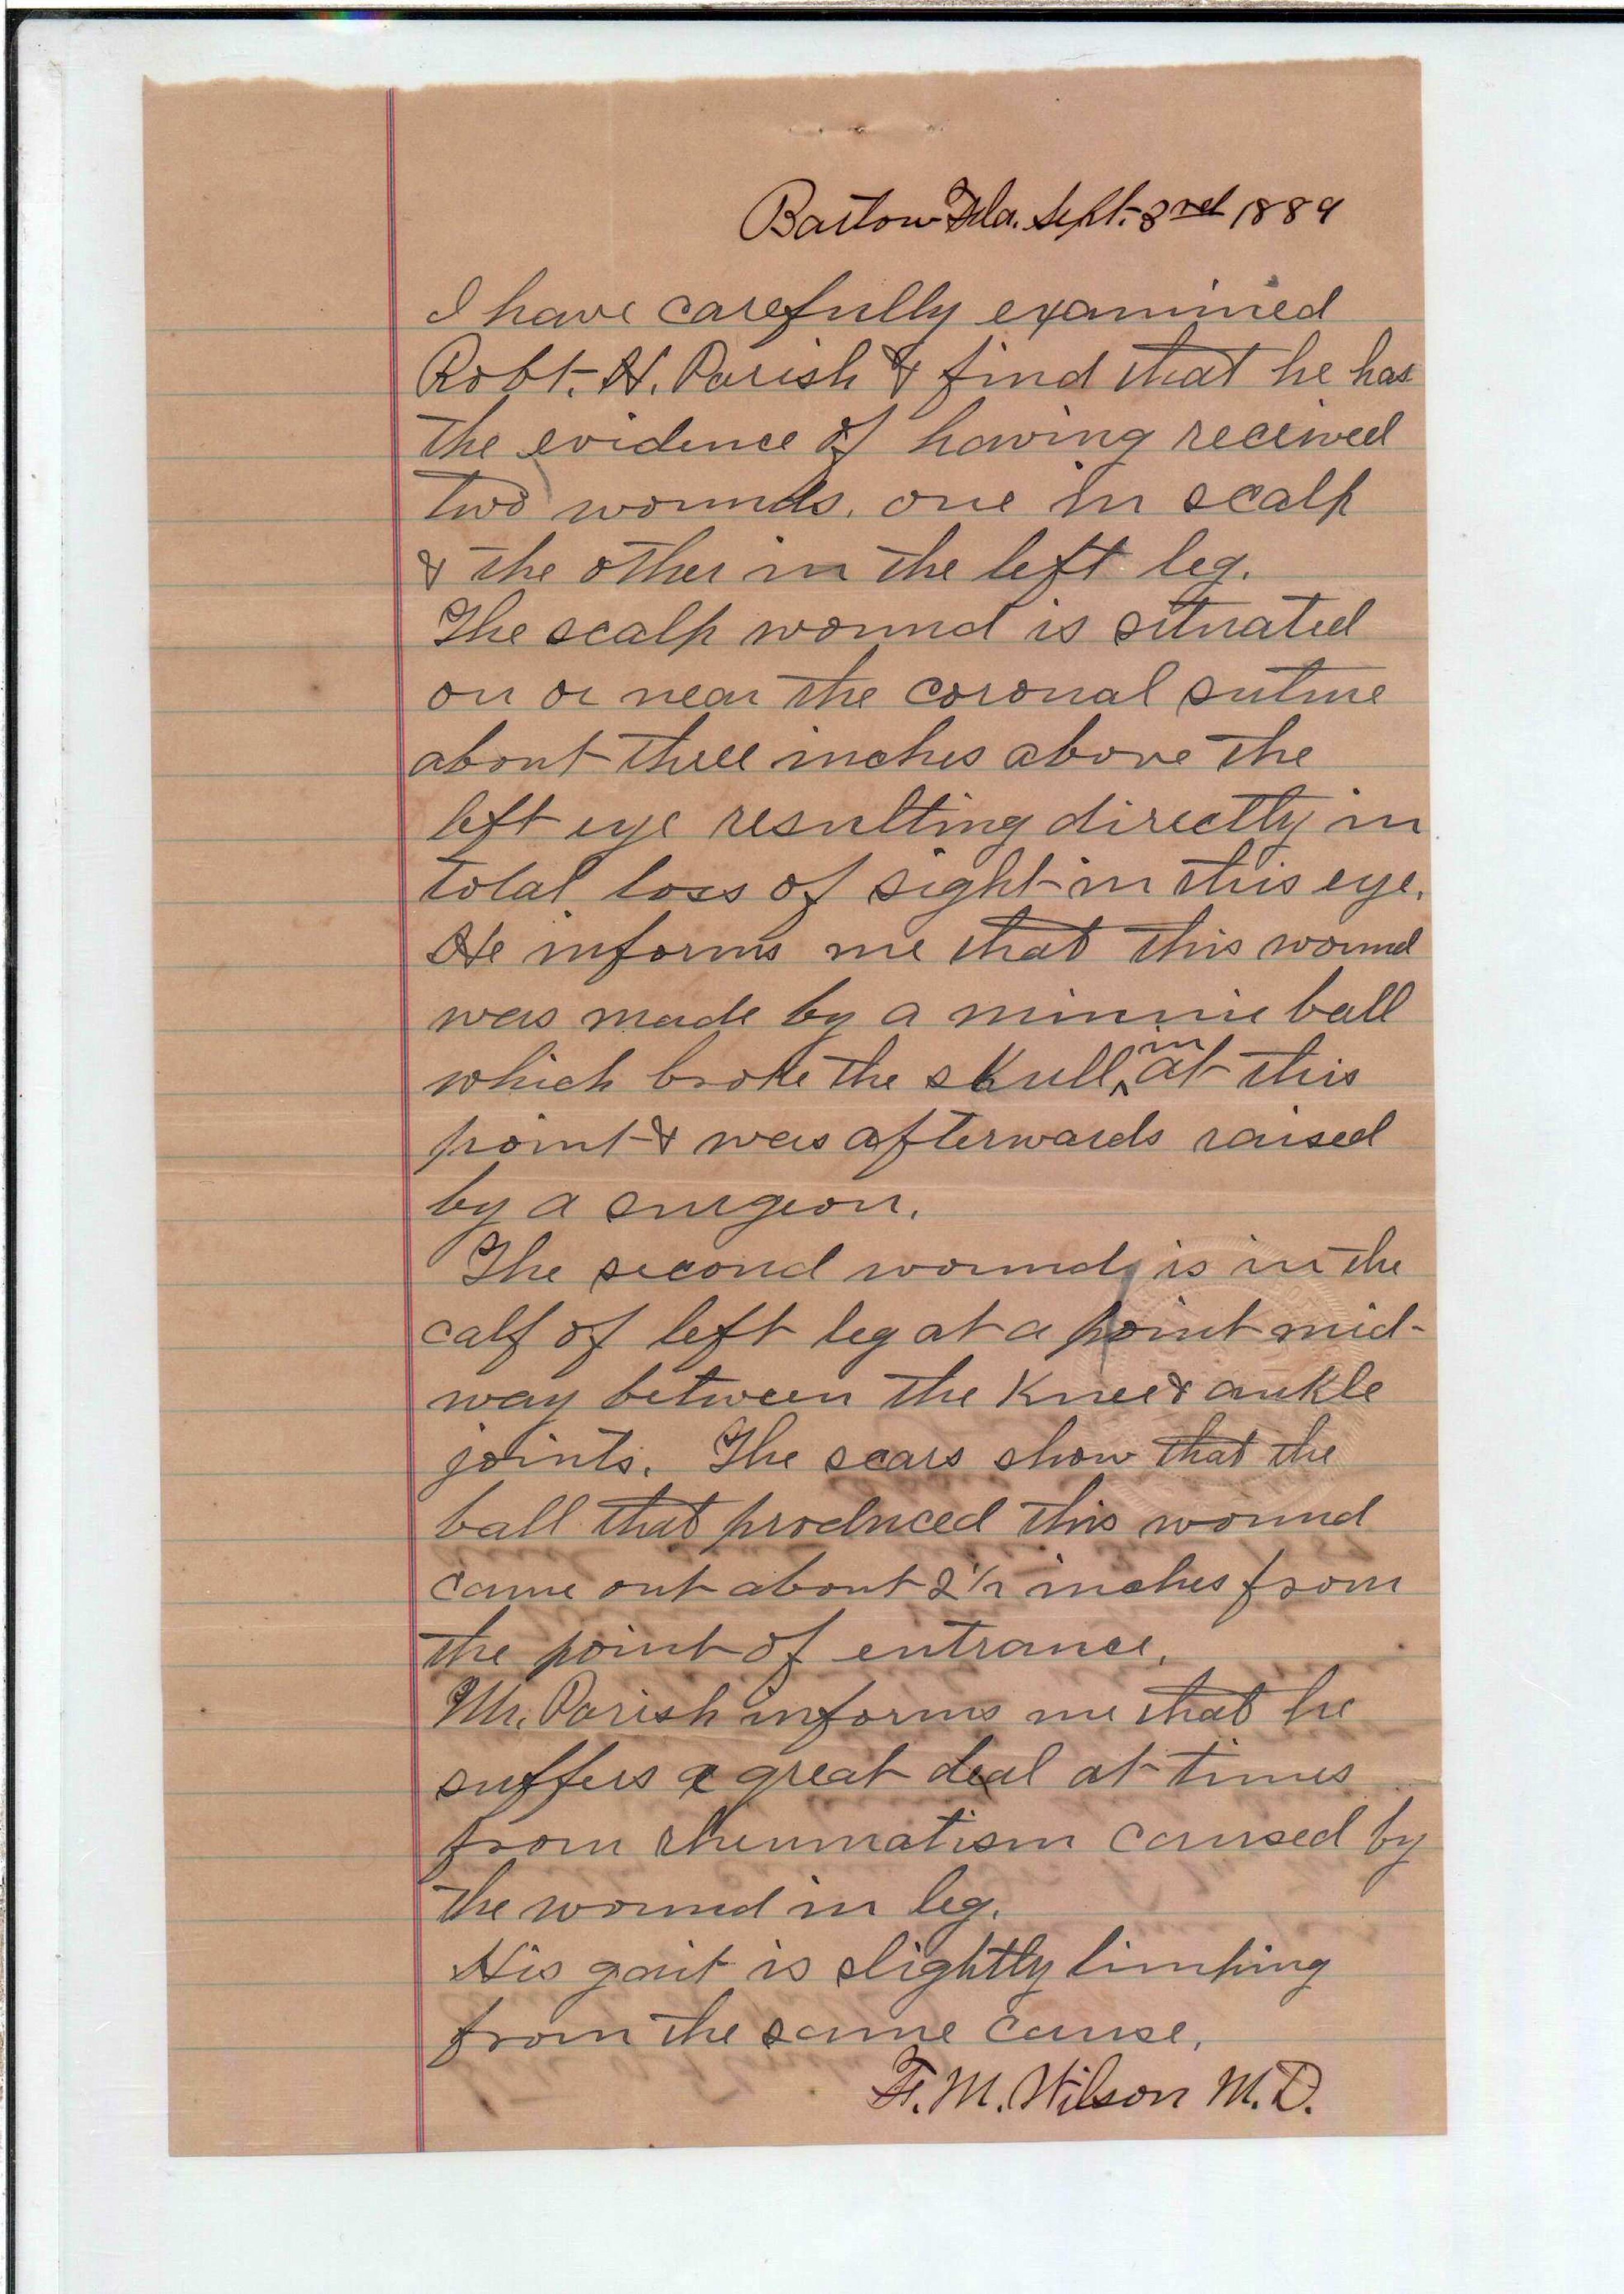 Bartow Fla. Sept. 3rd 1889
I have carefully examined
Robt. H. Parish & find that he has
the evidence of having received
two wounds, one in scalp
& the other in the left leg.
The scalp wound is situated
on or near the coronal suture
about three inches above the
left eye resulting directly in
total loss of sight in this eye.
He informs me that this wound
was made by a minnie ball
which broke the skull, in at this
point & was afterwards raised
by a surgeon.
The second wound, is in the
calf of left leg at a point mid-
way between the knee & ankle
joints. The scars show that the
ball that produced this wound
came out about 2 1/2 inches from
the point of entrance.
Mr. Parish informs me that he
suffers a great deal at times
from rheumatism caused by
the wound in leg.
His gait is slightly limping
from the same cause.
F. M. Wilson M.D.